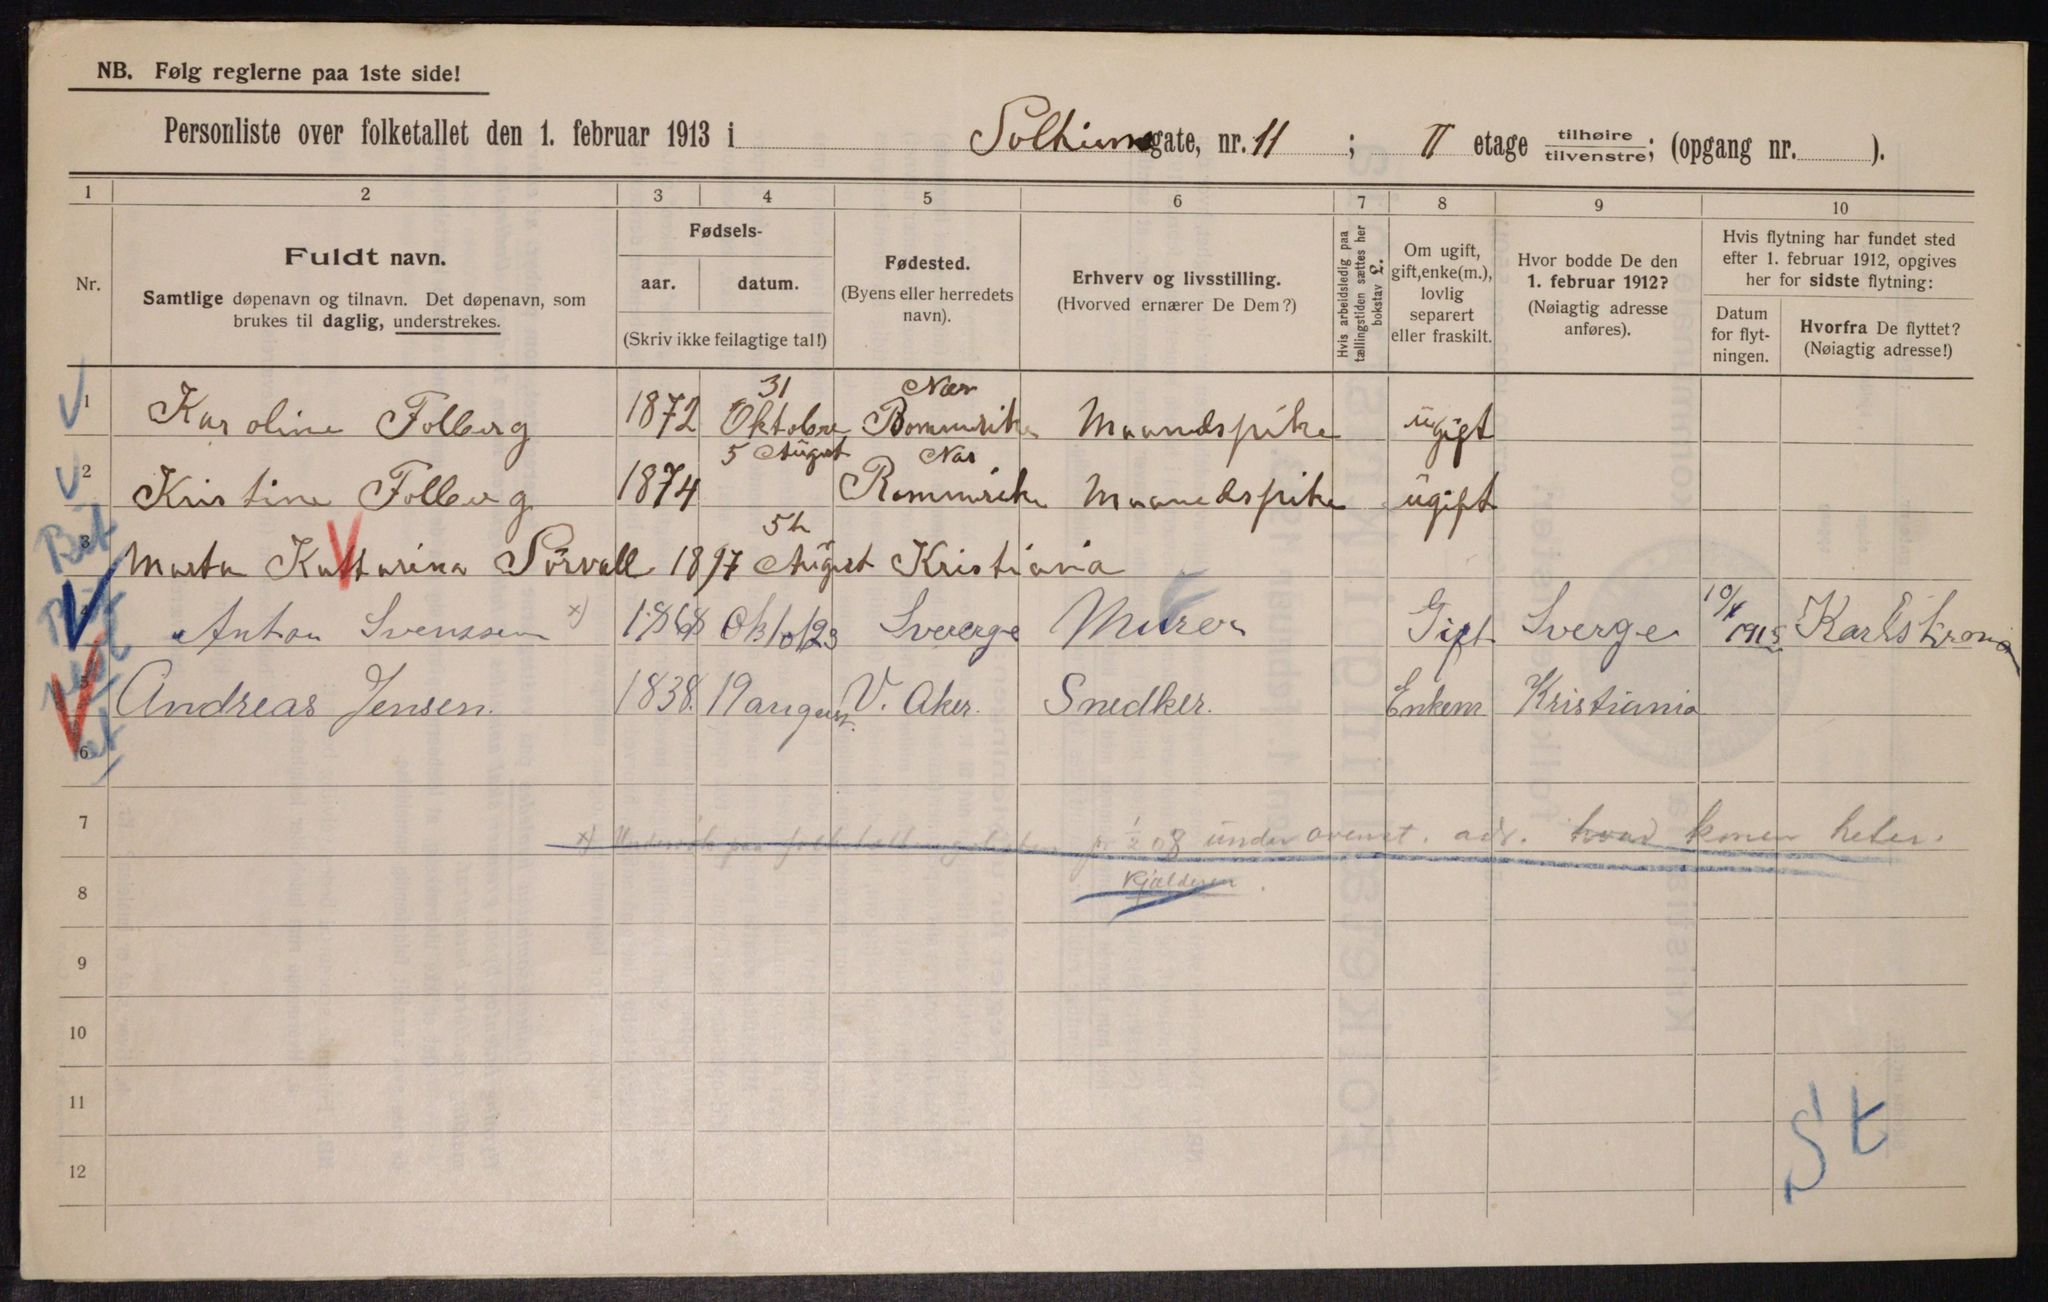 NB. Følg reglerne paa 1ste side!
Personliste over folketallet den 1. februar 1913 i Solheimsgate, nr. 11 ; II etage tilhøire/tilvenstre; (opgang nr. ).
1 2 3 4 5 6 7 8 9 10
Nr.
Fuldt navn.
Samtlige døpenavn og tilnavn. Det døpenavn, som
brukes til daglig, understrekes.
Fødsels-
aar. datum.
(Skriv ikke feilagtige tal!)
Fødested.
(Byens eller herredets
navn).
Erhverv og livsstilling.
(Hvorved ernærer De Dem?)
Hvis arbeidsledig paa
tællingstiden sættes her
bokstav L.
Om ugift,
gift, enke(m.),
lovlig
separert
eller fraskilt.
Hvor bodde De den
1. februar 1912?
(Nøiagtig adresse
anføres).
Hvis flytning har fundet sted
efter 1. februar 1912, opgives
her for sidste flytning:
Datum
for flyt-
ningen.
Hvorfra De flyttet?
(Nøiagtig adresse!)
1 Karoline Folberg 1872 31 Oktobre Nær Rommerike Maandspike ugift
2 Kristine Folberg 1874 5 August Nær Rommerike Maanedspike ugift
3 Marta Kattarina Sörvall 1897 5h August Kristiania
4 Anton Svenssen x) 1868 Okto 23 Sverge Murer Gift Sverge 10/ 1912 Karlskrona
5 Andreas Jensen. 1838. 19 august. V. Aker. Snedker. Enkem Kristiania
6
7
x) paa folketællingslisten pr 1/2 08 under ovenst. adr. hvad konen heter.
8
Kjælderen.
9
10
11
12
St